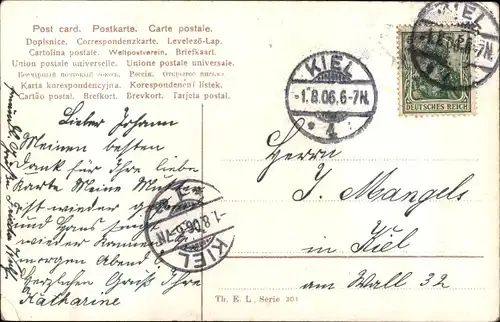 Post card. Postkarte. Carte postale.
Dopisnice. Correspondenzkarte. Levelező-Lap.
Cartolina postale. Weltpostverein. Briefkaart.
Union postale universelle. Unione postale universale.
Karta korespondencyjna. Korespondenční lístek.
Cartão postal. Brefkort. Brevkort. Tarjeta postal.
KIEL
-1.8.06.6-7N.
4
KIEL
DEUTSCHES REICH
Lieber Johann
Meinen besten
Dank für Ihre liebe
Karte Meine Mutter
ist wieder
und Hans
wieder
morgen Abend
Herzlichen Gruß Ihre
Katharine
KIEL
-1.8.06.6-7N.
Herrn
J. Mangels
in Kiel
am Wall 32
Th. E. L., Serie 301